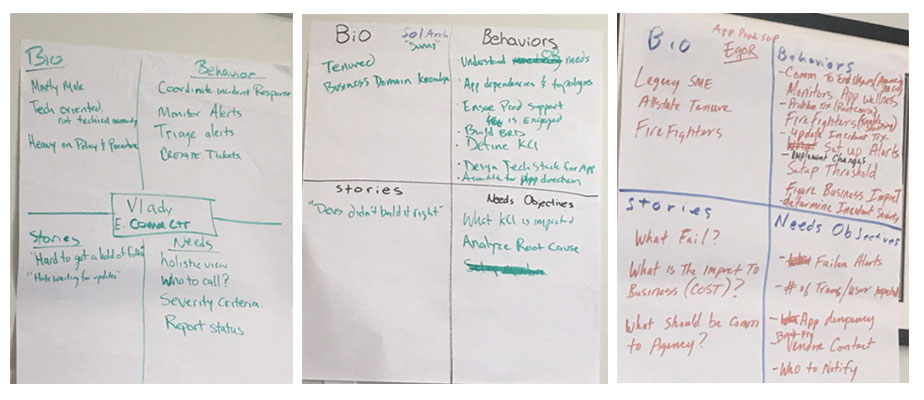 Bio
Mostly Male
Tech oriented,
not technical
Heavy on Policy & Procedure
Behavior
Coordinate Incident Response
Monitor Alerts
Triage alerts
Create Tickets
Vladv
E. Comm Ctr
Stories
"Hard to get a hold of folks"
"Hate waiting for updates"
Needs
holistic view
Who to call?
Severity Criteria.
Report status
Bio
Sol Arch
Tenured
Business Domain Knowledge
Behaviors
Understand needs
App dependencies & topologies
Ensue Prod support
is Engaged
• Build BRD
• Define KCI
• Design Tech Stack for App
• Accountable for App direction
Stories
"Devs didn't build it right"
Needs Objectives
What KCI is impacted
Analyze Root Cause
Bio
App Prod Sup
Egor
Legacy SME
Allstate Tenure
Fire Fighters
Behaviors
- Comm To End Users
Monitors App Wellnes
- Problem Tix (Root Cause)
Fire Fighters
- Update Incident Tix
Set up Alerts
- Implement Changes
Setup Threshold
Figure Business Impact
- determine Incident
Stories
What Fail?
What Is The Impact To
Business (COST)?
What Should be Comm
to Agency?
Needs Objectives
- Failure Alerts
- # of Trans/User Impacted
- App dempancy
Vendor Contact
- Who to Notify